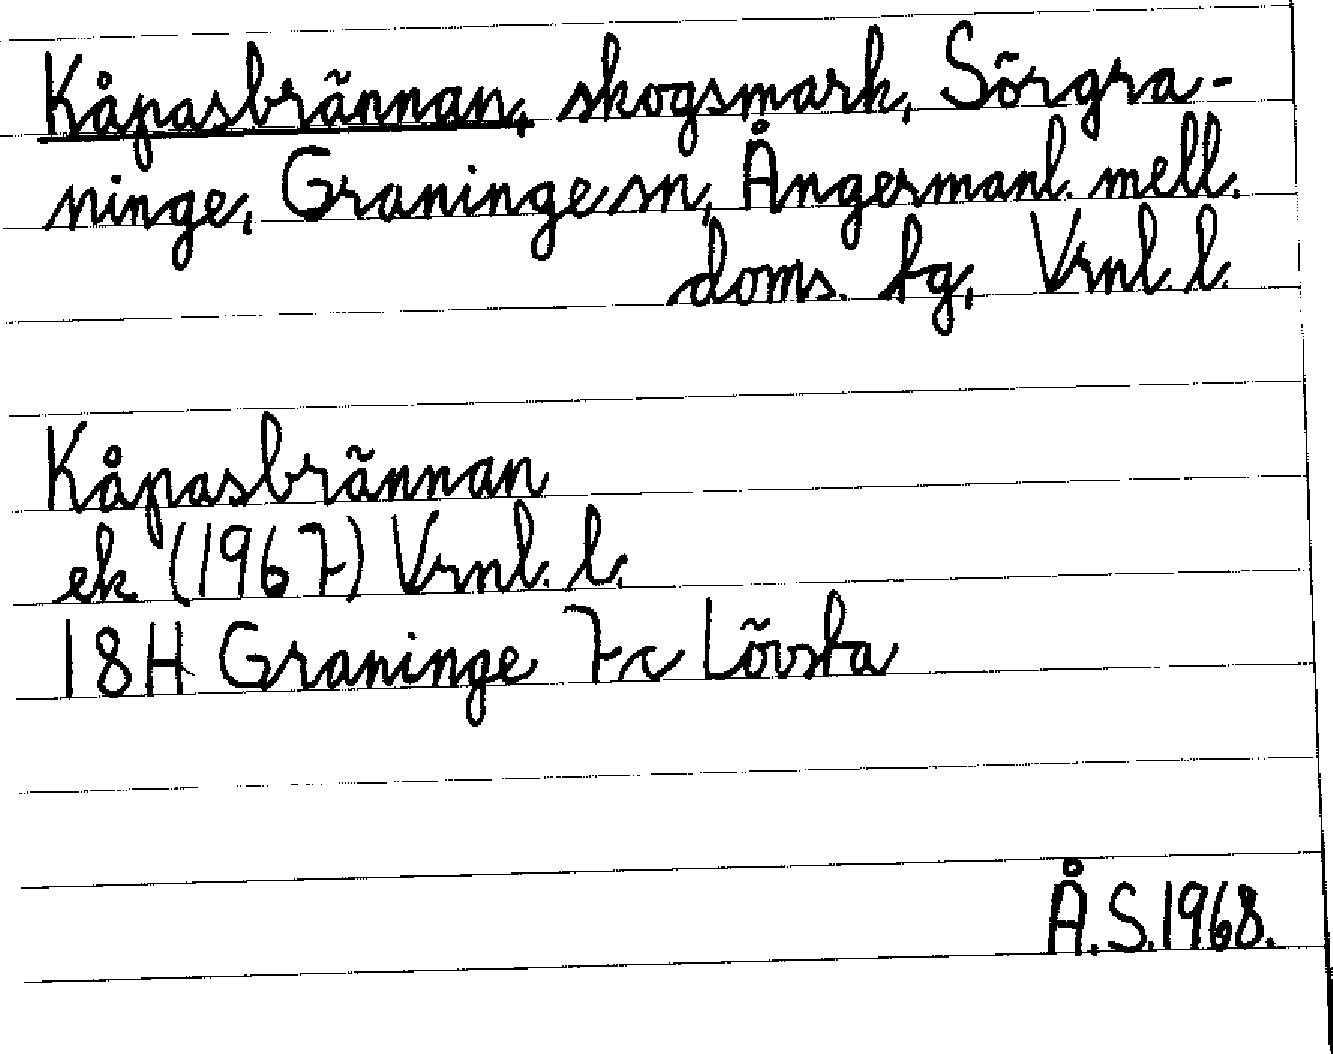 Kåpasbrännan, skogsmark, Sörgra-
ninge, Graninge sn, Ångermanl. mell.
doms. tg, Vrnl. l.
Kåpasbrännan
ek (1967) Vrnl. l.
18H Graninge 7c Lövsta
Å.S.1968.